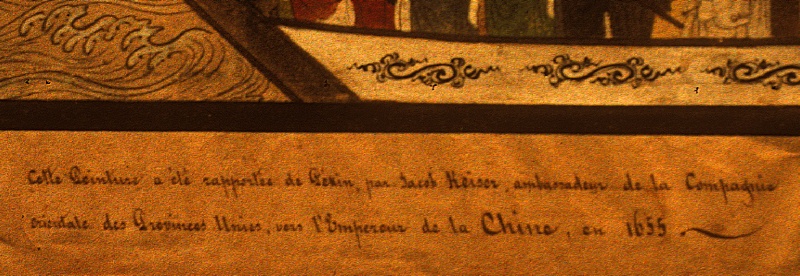 Cette Peinture a été rapportée de Pékin, par Jacob Keiser, ambassadeur de la Compagnie
orientale des Provinces Unies, vers l'Empereur de la Chine, en 1655